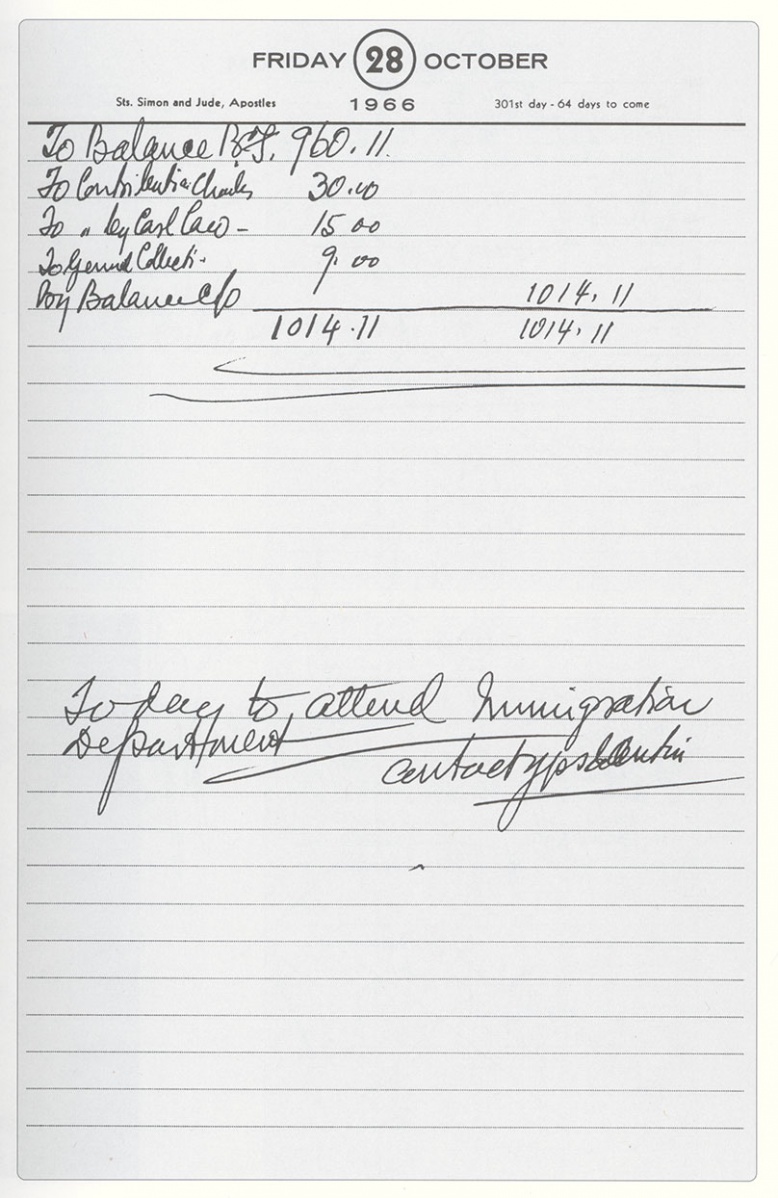 FRIDAY 28 OCTOBER
Sts. Simon and Jude, Apostles 1966 301st day - 64 days to come
To Balance B.F. 960.11.
To Contribution Charles 30.00
To " by Carl Caw - 15 00
To General Collecti. 9. 00
By Balance C/o 1014. 11
1014.11 1014. 11
Today to attend Immigration
Department
contact